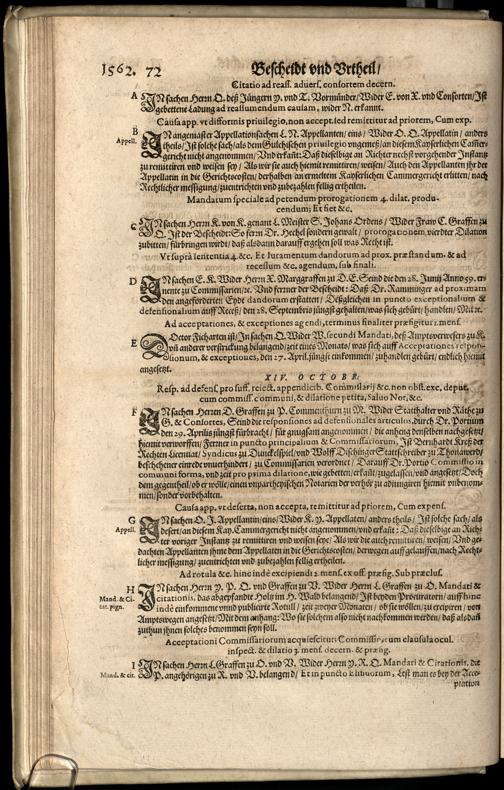 1562. 72 Bescheidt vnd Vrtheil/
Citatio ad reass. aduers. consortem decern.
A IN sachen Herrn O. deß Jüngern y. vnd T. Vormünder/ Wider E. von X. vnd Consorten/ Ist
gebettene Ladung ad reassumendum causam, wider N. erkannt.
Causa app. vt difformis priuilegio, non accept. sed remittitur ad priorem, Cum exp.
B
Appell.
IN angemaßter Appellation sachen L. N. Appellanten/ eins/ Wider O. O. Appellatin/ anders
theils/ Ist solche sach/ als dem Gülchischen priuilegio vngemeß/ an diesem Kayserlichen Cam̃er-
gericht nicht angenommen/ Vnd erkañt: Daß dieselbige an Richter nechst vorgehender Instantz
zu remittiren vnd weisen sey/ Als wir sie auch hiemit remittiren/ weisen/ Auch den Appellanten jhr der
Appellatin in die Gerichtscosten/ derhalben an ermeltem Kayserlichen Cammergericht erlitten/ nach
Rechtlicher messigung/ zuentrichten vnd zubezahlen fellig ertheilen.
Mandatum speciale ad petendum prorogationem 4. dilat. produ-
cendum; Et fiet &c.
C IN sachen Herrn K. von K. genant L. Meister S. Johans Ordens/ Wider Fraw C. Graffen zu
O. Ist der Bescheidt: So fern Dr. Hechel sondern gewalt/ prorogationem, vierdter Dilation
zubitten/ fürbringen wirdt/ daß alsdann darauff ergehen soll was Recht ist.
Vt suprà sententia 4. &c. Et Iuramentum dandorum ad prox. præstandum, & ad
recessum &c. agendum, sub finali.
D IN sachen E. K. Wider Herrn X. Marggraffen zu D. E. Seind die den 28. Junij Anno 59. er-
nente zu Commissarien/ ꝛc. Vnd ferrner der Bescheidt: Daß Dr. Ramminger ad proximam
den angeforderten Eydt dandorum erstatten/ Deßgleichen in puncto exceptionalium &
defensionalium auff Receß/ den 28. Septembris jüngst gehalten/ was sich gebürt/ handlen/ Mit ꝛc.
Ad acceptationes, & exceptiones agendi, terminus finaliter præfigitur 1. mens.
E Doctor Fichartn ist/ In sachen O. Wider W. secundi Mandati, deß Amptsverwesers zu K.
vnd anderer verstrickung belangend/ zeit eines Monats/ was sich auff Acceptationes respon-
sionum, & exceptiones, den 27. April. jüngst einkommen/ zuhandlen gebürt/ endlich hiemit
angesetzt.
XIV. OCTOBR:
Resp. ad defens. pro suff. reiect. appendicib. Commissarij &c. non obst. exc. deput.
cum commiss. communi, & dilatione petita, Saluo Nor, &c.
F IN sachen Herrn O. Graffen zu P. Commenthurn zu M. Wider Statthalter vnd Räthe zu
G. & Consortes, Seind die responsiones ad defensionales articulos, durch Dr. Portium
den 29. Aprilis jüngst fürbracht/ für gnugsam angenommen/ die anheng denselben nachgesetzt/
hiemit verworffen/ Ferrner in puncto principalium & Commissariorum, Ist Bernhardt Kreß der
Rechten Licentiat/ Syndicus zu Dunckelspiel/ vnd Wolff Dischinger Stattschreiber zu Thonawerd/
beschehener einrede vnuerhindert/ zu Commissarien verordnet/ Darauff Dr. Portio Commissio in
communi forma, vnd zeit pro prima dilatione, wie gebetten/ erkañt/ zugelassen/ vnd angesetzt/ Doch
dem gegentheil/ ob er wolle/ einen vnpartheyischen Notarien der verhör zu adiungiren hiemit vnbenom-
men/ sonder vorbehalten.
Causa app. vt deserta, non accepta, remittitur ad priorem, Cum expens.
G
Appell.
IN sachen O. J. Appellantin/ eins/ Wider K. y. Appellaten/ anders theils/ Ist solche sach/ als
desert/ an diesem Kay. Cammergericht nicht angenommen/ vnd erkañt: Daß dieselbige an Rich-
ter voriger Instantz zu remittiren vnd weisen seye/ Als wir die auch remittiren/ weisen/ Vnd ge-
dachten Appellanten jhme dem Appellaten in die Gerichtscosten/ derwegen auffgelauffen/ nach Recht-
licher messigung/ zuentrichten vnd zubezahlen fellig ertheilen.
Ad rotula &c. hinc indè excipiendi 2. mens. ex off. præfig. Sub præclus.
H
Mand. & Ci-
tat. pign.
IN sachen Herrn y. P. Q. vnd Graffen zu V. Wider Herrn L. Graffen zu O. Mandati &
citationis, das abgepfandte Holtz im H. Wald belangend/ Ist beyden Procuratorn/ auff hinc
indè einkommene vnnd publicirte Rotull/ zeit zweyer Monaten/ ob sie wöllen/ zu excipiren/ von
Amptswegen angesetzt/ Mit dem anhang: Wo sie solchem also nicht nachkommen werden/ daß alsdañ
zuthun jhnen solches benommen seyn soll.
Acceptationi Commissariorum acquiescitur: Commissio, cum clausula ocul.
inspect. & dilatio 3. mens. decern. & præfig.
I
Mand. & cit.
IN sachen Herrn L. Graffen zu O. vnd V. Wider Herrn y. R. Q. Mandati & Citationis, die
P. angehörigen zu R. vnd V. belangend/ Et in puncto Emunorum, Lest man es bey der Acce-
ptation